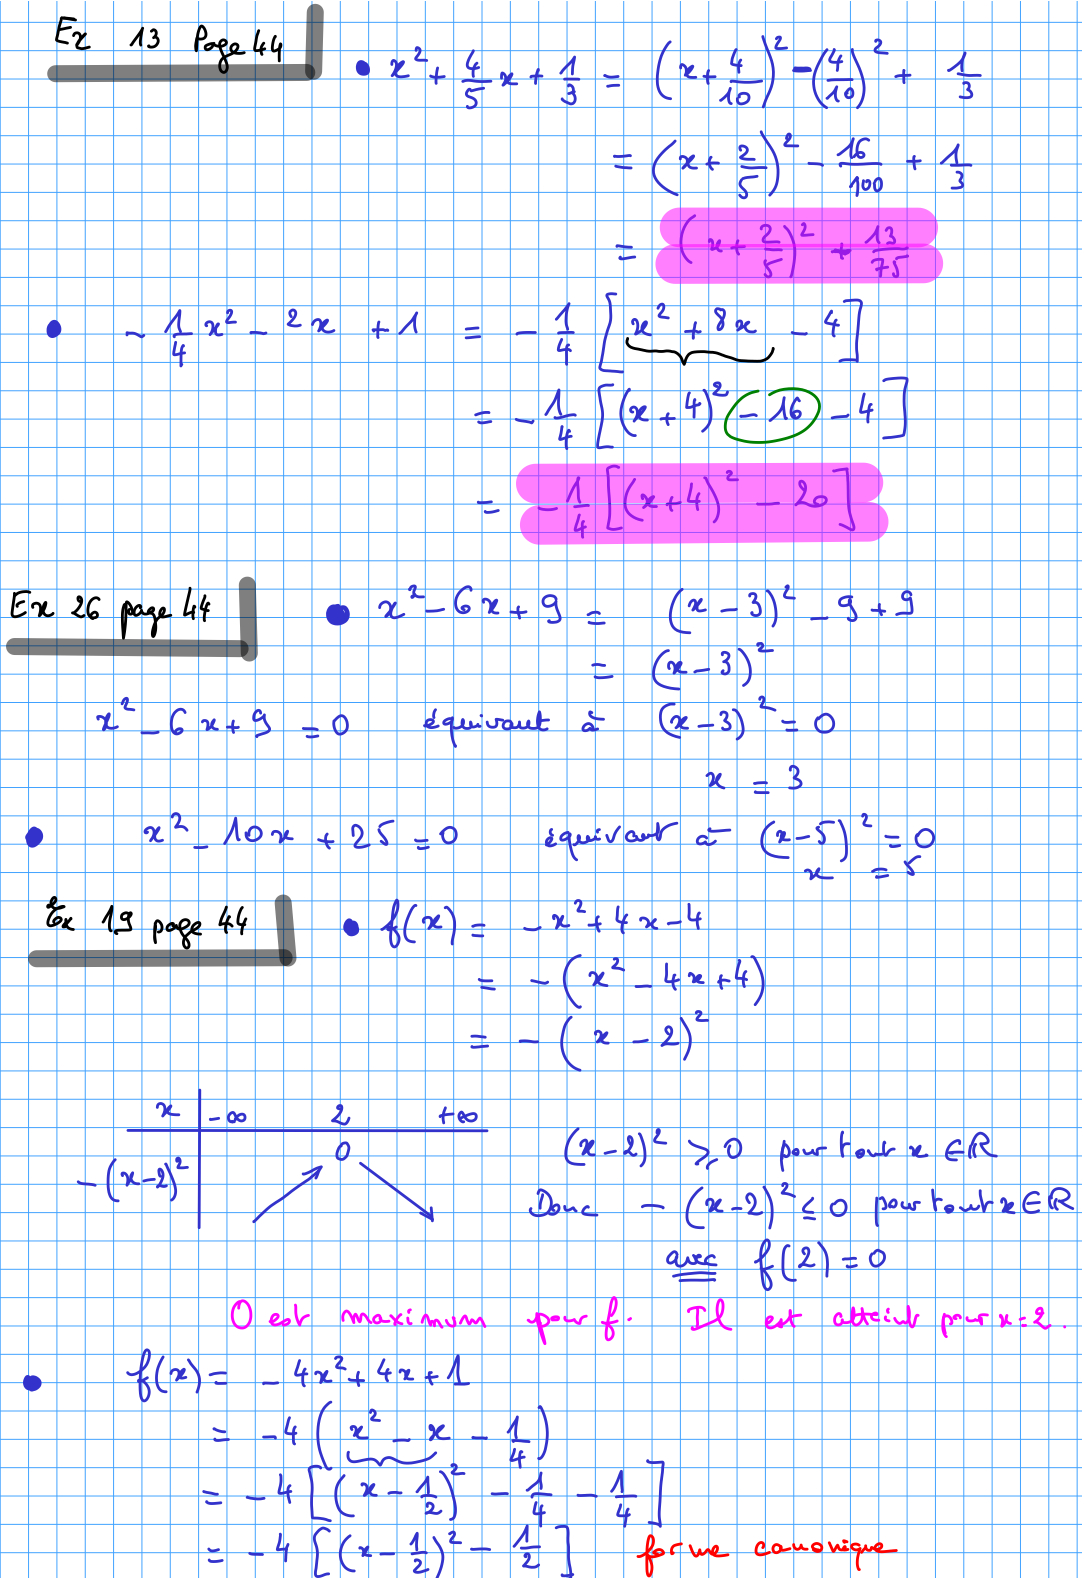 Ex 13 Page 44
• x² + 4/5 x + 1/3 = (x + 4/10)² - (4/10)² + 1/3
= (x + 2/5)² - 16/100 + 1/3
= (x + 2/5)² + 13/75
• - 1/4 x² - 2x + 1 = - 1/4 [x² + 8x - 4]
= - 1/4 [(x + 4)² - 16 - 4]
= - 1/4 [(x + 4)² - 20]
Ex 26 page 44
• x² - 6x + 9 = (x - 3)² - 9 + 9
= (x - 3)²
x² - 6x + 9 = 0 équivaut à (x - 3)² = 0
x = 3
• x² - 10x + 25 = 0 équivaut à (x - 5)² = 0
x = 5
Ex 19 page 44
• f(x) = - x² + 4x - 4
= - (x² - 4x + 4)
= - (x - 2)²
x -∞ 2 +∞
- (x - 2)² 0
(x - 2)² ⩾ 0 pour tout x ∈ ℝ
Donc - (x - 2)² ≤ 0 pour tout x ∈ ℝ
avec f(2) = 0
0 est maximum pour f. Il est atteint pour x = 2.
• f(x) = - 4x² + 4x + 1
= - 4 (x² - x - 1/4)
= - 4 [(x - 1/2)² - 1/4 - 1/4]
= - 4 [(x - 1/2)² - 1/2] forme canonique